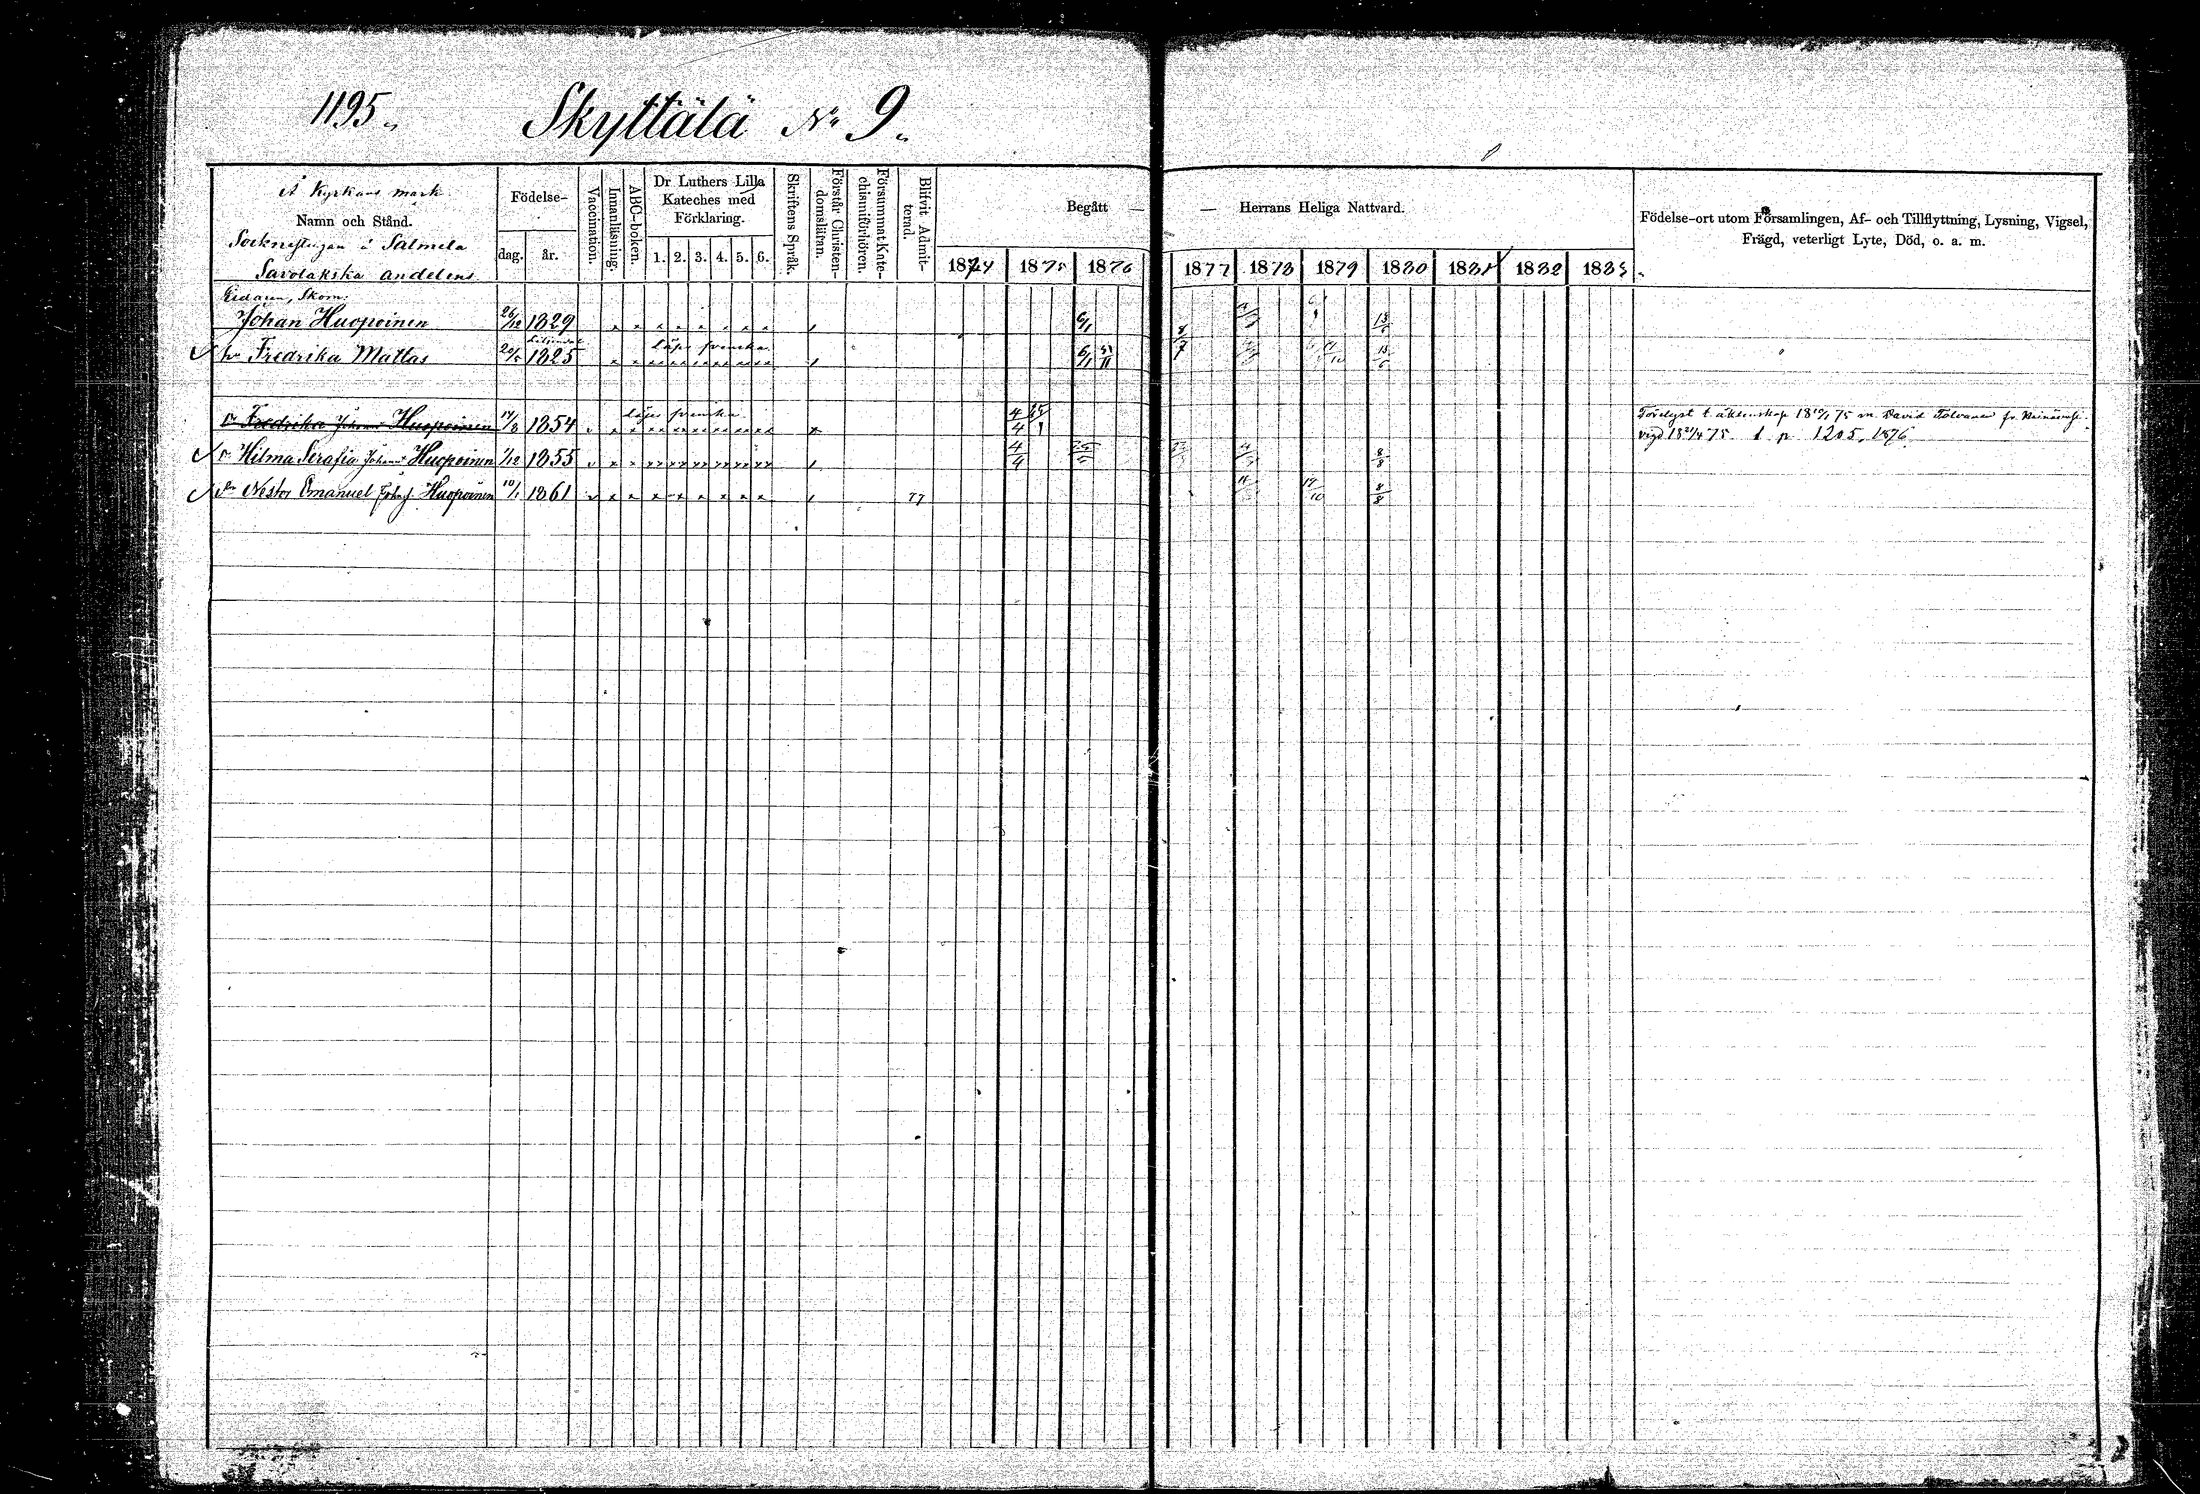 1195.
Skyttälä No 9.
Å Kyrkans mark
Namn och Stånd.
Sockenstugan i Salmela
Savolakska andelens
Födelse-
dag. år.
Vaccination.
Innanläsning.
ABC-boken.
Dr Luthers Lilla
Kateches med
Förklaring.
1. 2. 3. 4. 5. 6.
Skriftens Språk.
Förstår Christen-
domsläran.
Försummat Kate-
chismiförhören.
Blifvit Admit-
terad.
Begått — — Herrans Heliga Nattvard.
1874 1875 1876 1877 1878 1879 1880 1881 1882 1883
Födelse-ort utom Församlingen, Af- och Tillflyttning, Lysning, Vigsel,
Frägd, veterligt Lyte, Död, o. a. m.
Skom.
Johan Huopoinen 26/12 1829 6/1 13/6
hu Fredrika Mattas 20/5 1825 läser svenska 6/1 13/6
Dr Fredrika Johansdr Huopoinen 14/8 1854 läser svenska 4/4
Förlyst t. äktenskap 1875 m. David Tolvanen fr.
vigd 18 75. t. p. 1205. 1876
Dr Hilma Serafia Johansdr Huopoinen 1/12 1855 4/4 8/8
Sn Nestor Emanuel Johans. Huopoinen 10/1 1861 77 19/10 8/8